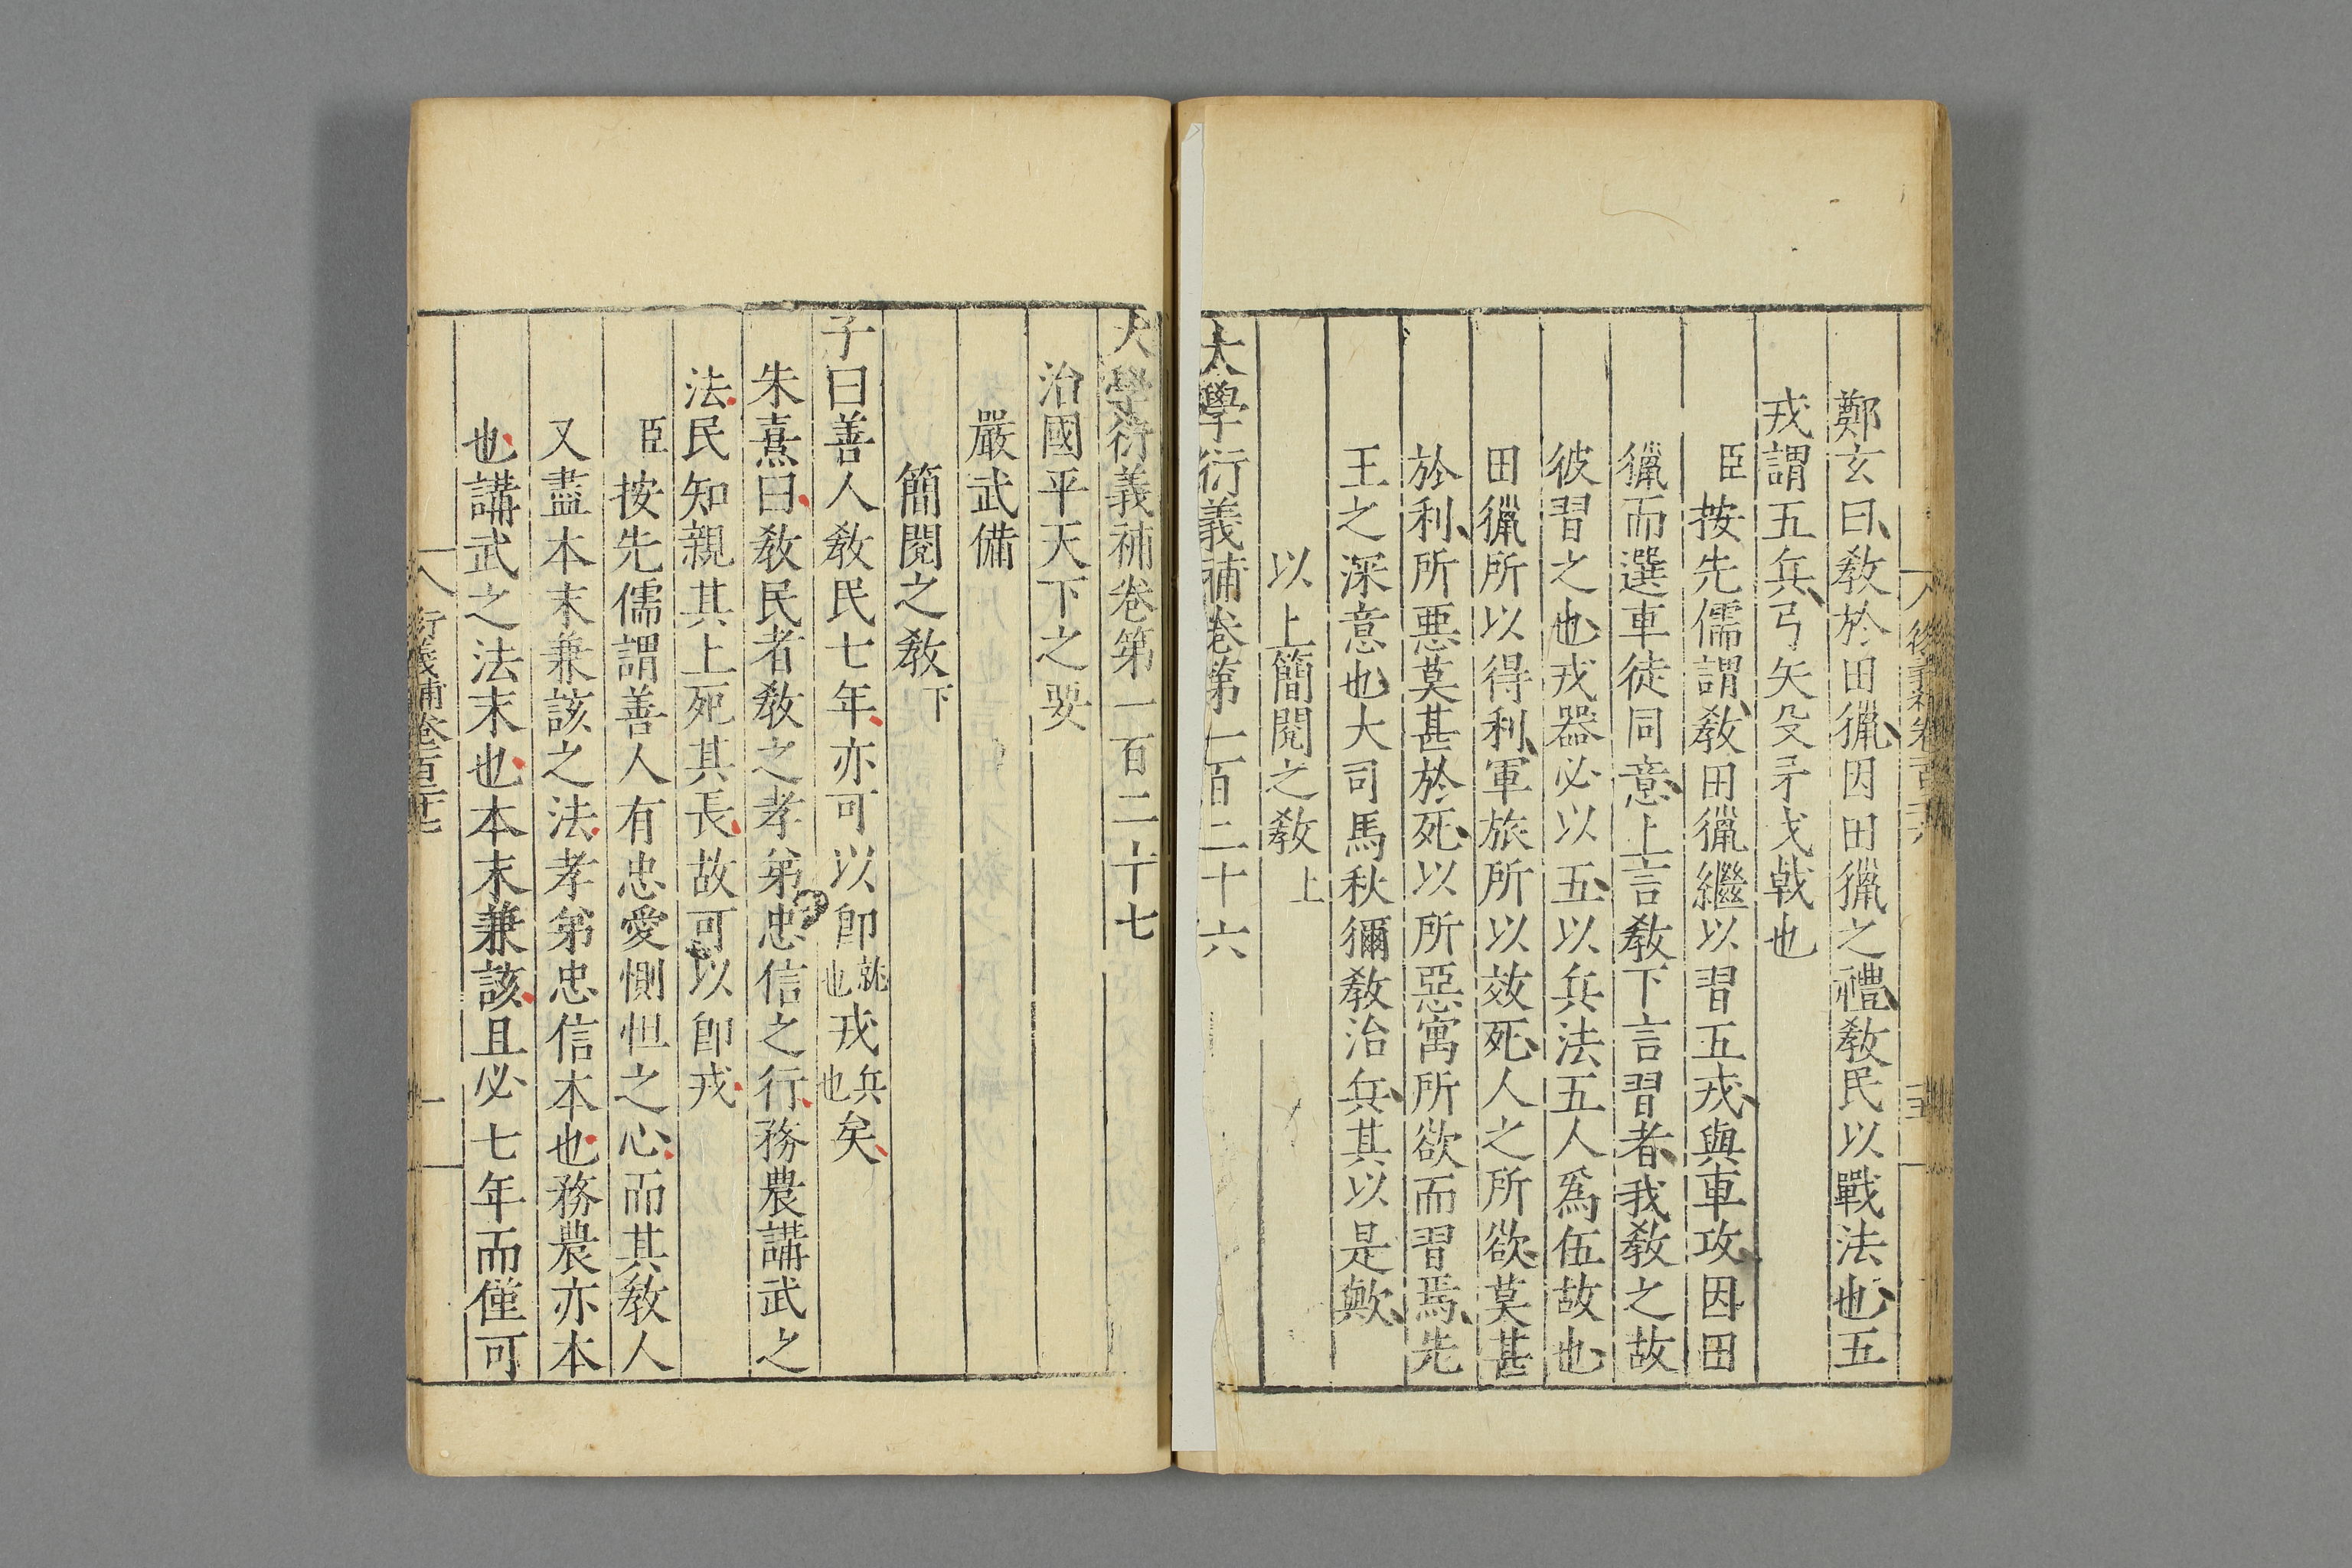 鄭玄曰教於田獵因田獵之禮教民以戰法也五
戎謂五兵弓矢殳矛戈戟也
臣按先儒謂教田獵繼以習五戎與車攻因田
獵而選車徒同意上言教下言習者我教之故
彼習之也戎器必以五以兵法五人爲伍故也
田獵所以得利軍旅所以效死人之所欲莫甚
於利所悪莫甚於死以所惡寓所欲而習焉先
王之深意也大司馬秋獮教治兵其以是歟
以上簡閱之教上
大學衍義補卷第一百二十六
大學衍義補卷第一百二十七
治國平天下之要
嚴武備
簡閱之教下
子曰善人教民七年亦可以卽就也戎兵也矣
朱熹曰教民者教之孝弟忠信之行務農講武之
法民知親其上死其長故可以卽戎
臣按先儒謂善人有忠愛惻怛之心而其教人
又盡本末兼該之法孝弟忠信本也務農亦本
也講武之法末也本末兼該且必七年而僅可
衍義補卷一百二十七
一